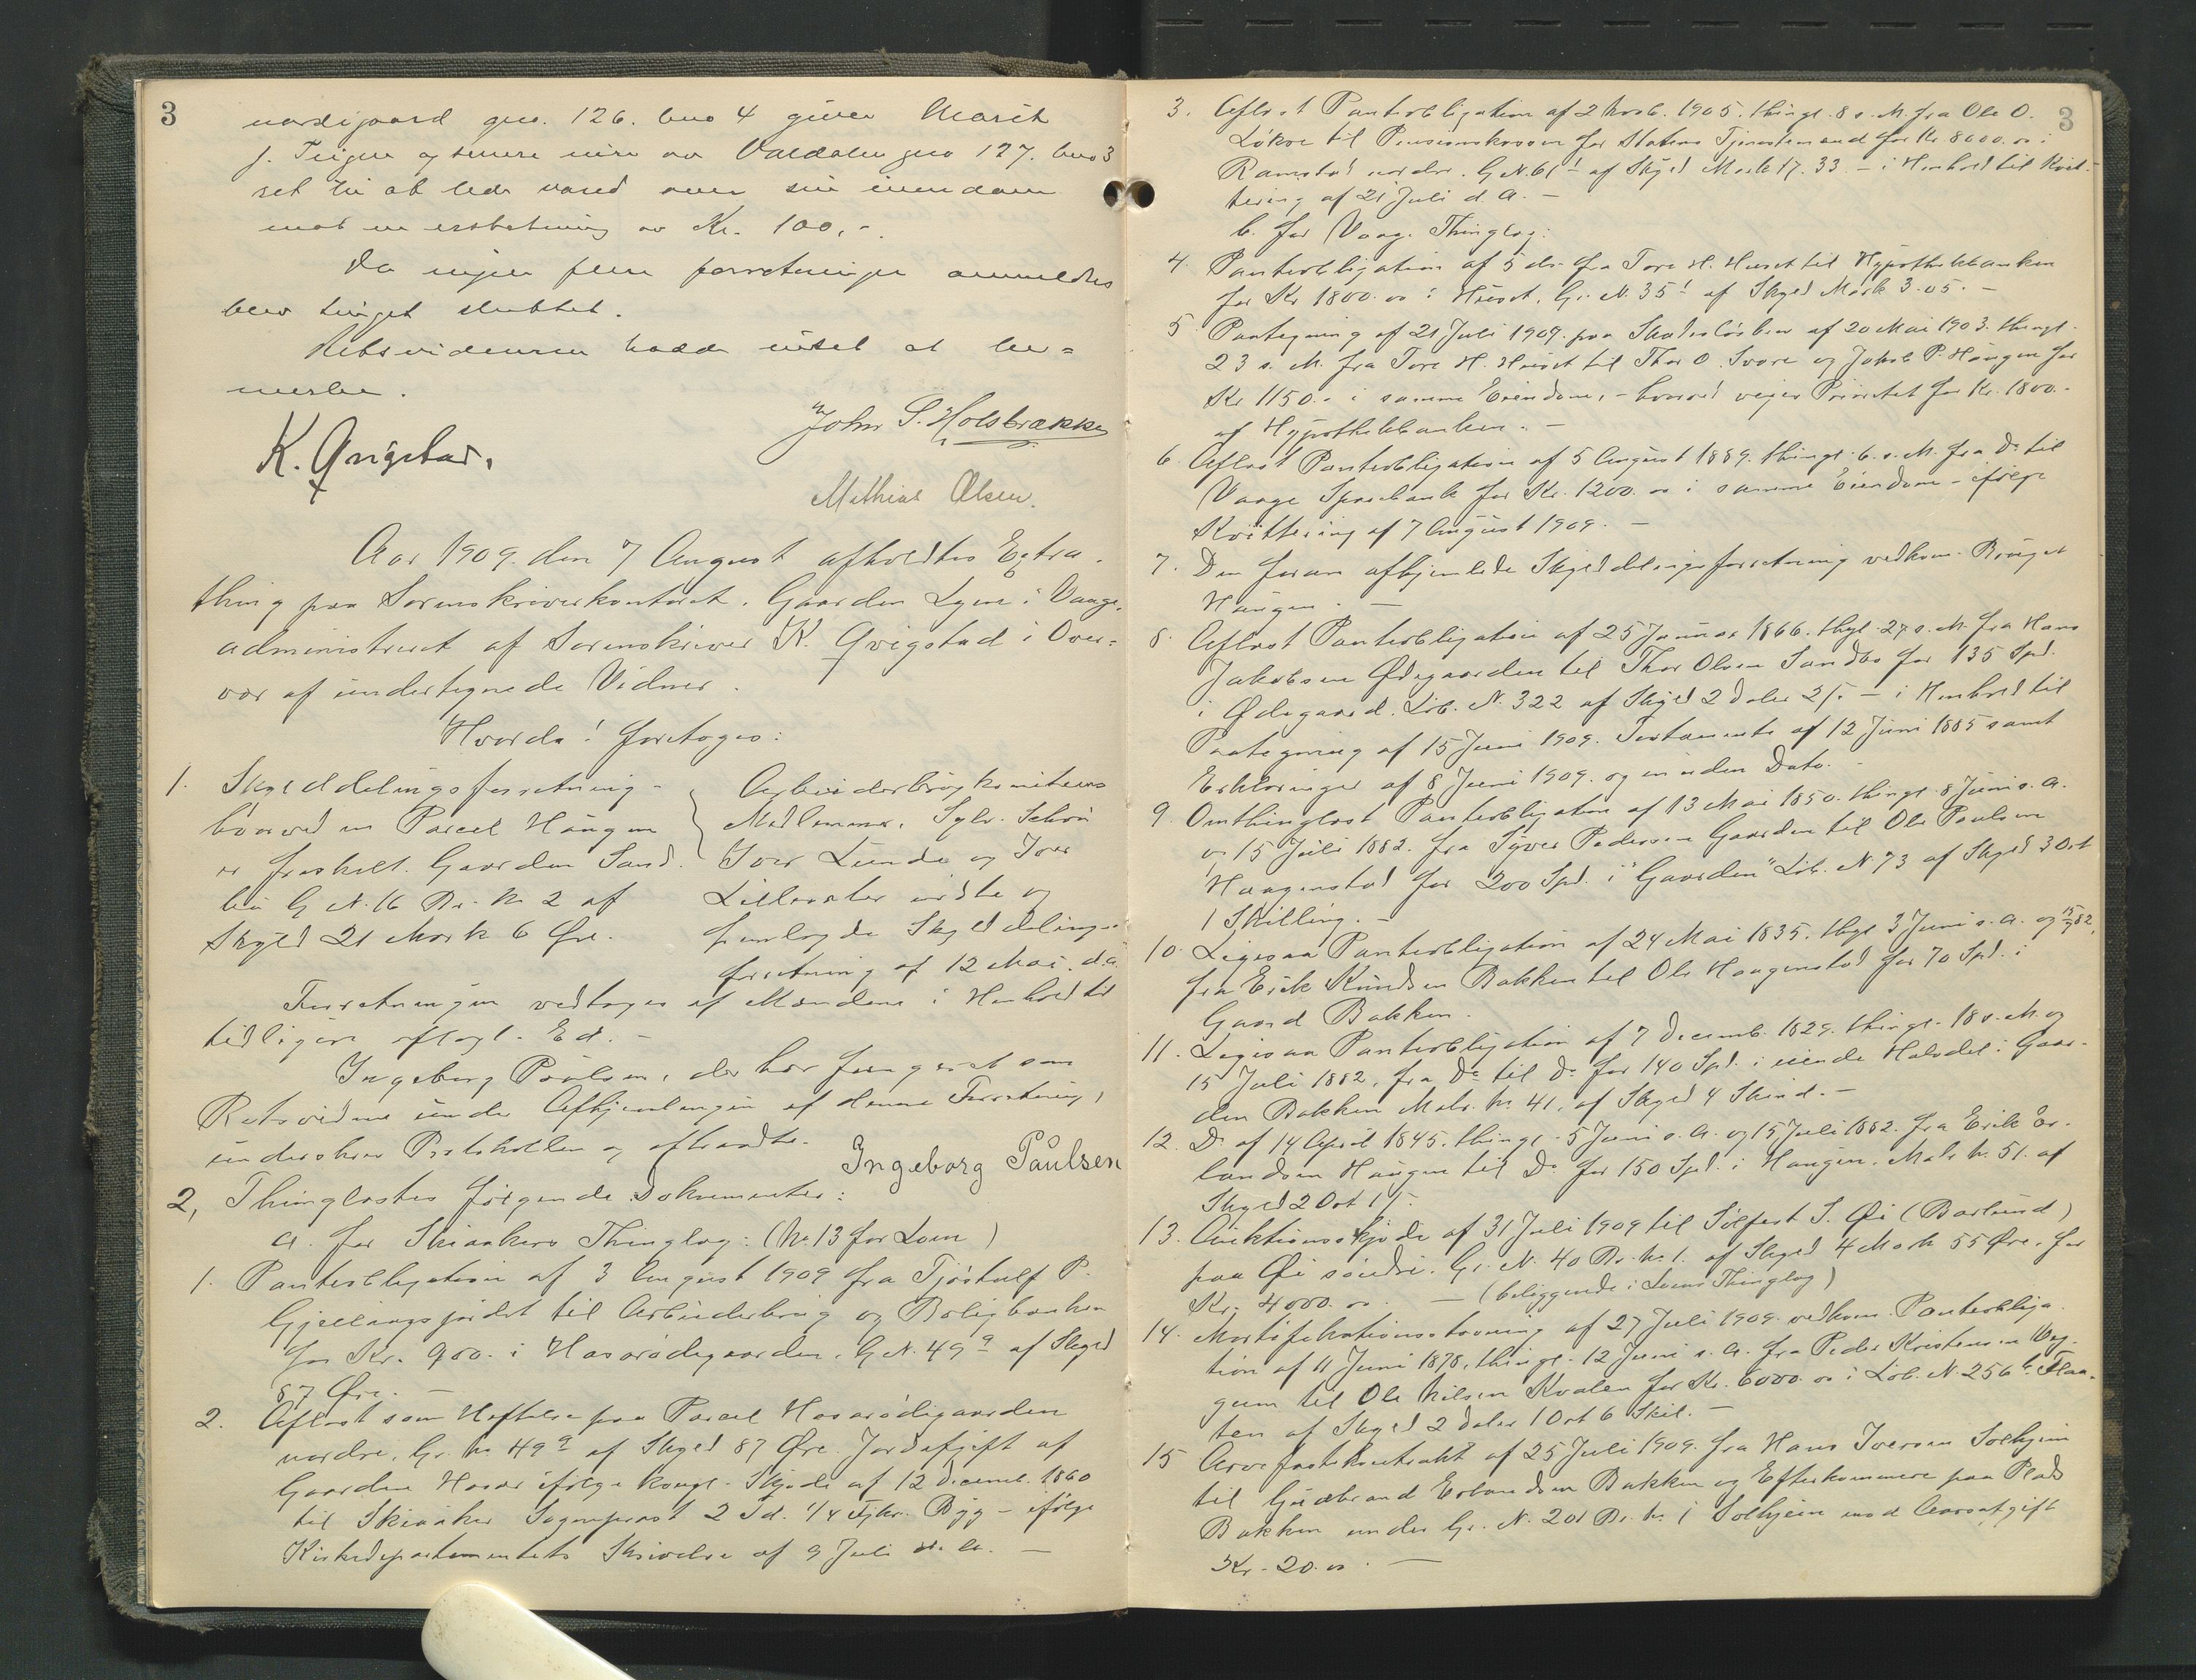 3
nordigaard gno. 126. bno 4 given Marit
J. Teigen og senere eiere av Valdalen gno 127. bno 3
ret til at lede vand over sin eiendom
mot en erstatning av Kr. 100,-.
Da ingen flere forretninger anmeldtes
blev tinget sluttet.
Retsvidnerne hadde intet at be=
merke.
K. Qvigstad.
John S. Holsbrækken
Mathias Olsen.
Aar 1909. den 7 August afholdtes Extra-
thing paa Sorenskriverkontoret, Gaarden Lyen i Vaage,
administreret af Sorenskriver K. Qvigstad i Over=
vær af undertegnede Vidner.
Hvorda! foretoges:
1. Skylddelingsforretning -
hvorved en Parcel Haugen
er fraskilt Gaarden Sand-
bu G. N. 16 Br. No 2 af
Skyld 21 Mark 6 Øre.
Arbeiderbrugkomiteens
Medlemmer, Sylv. Schou
Iver Lunde og Iver
Lillevolen indste og
fremlagde Skylddelings-
forretning af 12 Mai d.a.
Forretningen vedtoges af Mændene i Henhold til
tidligere aflagt Ed. -
Ingeborg Paulsen, der har fungeret som
Retsvidne under Afhjemlingen af denne Forretning,
underskrev Protokollen og aftraadte.
Ingeborg Paulsen
2, Thinglæstes følgende Dokumenter:
a. for Skiaakers Thinglag: (No. 13 for Lom)
1. Panteobligation af 3 August 1909 fra Tjøstulf P.
Gjeilaugsjordet til Arbeiderbrug og Boligbanken
for Kr. 900.- i Havarødegaarden. G. N. 49⁹ af Skyld
87 Øre. -
2. Aflæst som Heftelse paa Parcel Havarødigaarden
nordre, Gr. No 49⁹ af Skyld 87 Øre Jordafgift af
Gaarden Havar ifølge kongl. Skjøde af 12 Decemb. 1860
til Skiaaker Sogneprest 2 Td. 1/4 Fjkr. Byg - ifølge
Kirkedepartementets Skrivelse af 9 Juli d. A. -
3
3. Aflæst Panteobligation af 2 Novb. 1905. thingl. 8 s. M. fra Ole O.
Løkre til Pensionskassen for Statens Tjenestemænd for Kr 8000.00 i
Ramstad nordre. G N. 61¹ af Skyld Mark 17.33 - i Henhold til Kvit-
tering af 21 Juli d. A. -
b. for Vaage Thinglag:
4. Panteobligation af 5 ds. fra Tore H. Huset til Hypothekbanken
for Kr 1800.00 i Huset. Gr. N. 35¹ af Skyld Mark 3.05. -
5 Paategning af 21 Juli 1909. paa Skadesløsbrev af 20 Mai 1903. thingl.
23 s. M. fra Tore H. Huset til Thor O. Svare og Jakob P. Haugen for
Kr 1150.- i samme Eiendom, - hvorved viges Prioritet for Kr. 1800.-
af Hypothekbanken. -
6. Aflæst Panteobligation af 5 August 1889. thingl. 6. s. M. fra Do til
Vaage Sparebank for Kr. 1200.00 i samme Eiendom - ifølge
Kvittering af 7 August 1909. -
7. Den foran afhjemlede Skylddelingsforretning vedkom. Bruget
Haugen. -
8. Aflæst Panteobligation af 25 Januar 1866. thgl. 27 s. M. fra Hans
Jakobsen Ødegaarden til Thor Olsen Sandbo for 135 Spd.
i Ødegaard. Løb. N. 322 af Skyld 2 Daler 2 /. - i Henhold til
Paategning af 15 Juni 1909. Testamente af 12 Juni 1885 samt
Erklæringer af 8 Juni 1909. og en uden Dato. -
9. Omthinglæst Panteobligation af 13 Mai 1850. thingl. 8 Juni s. A.
og 15 Juli 1882. fra Syver Pedersen Gaarden til Ole Paulsen
Haagenstad for 200 Spd. i "Gaarden" Løb. N 73 af Skyld 3 Ort
1 Skilling. -
10. Ligesaa Panteobligation af 24 Mai 1835. thgl 3 Juni s. A. og 15/7 82,
fra Erik Knudsen Bakken til Ole Haagenstad for 70 Spd. i
Gaard Bakken.
11. Ligesaa Panteobligation af 7 Decemb. 1829. thingl. 18 s. M. og
15 Juli 1882, fra Do til Do for 140 Spd. i eiende Halvdel i Gaar-
den Bakken Matr. No 41. af Skyld 4 Skind. -
12. Do af 14 April 1845. thingl. 5 Juni s. A. og 15 Juli 1882. fra Erik Er-
landsen Haugen til Do for 150 Spd. i Haugen. Matr No. 51. af
Skyld 2 Ort 1 /.
13. Auktionsskjøde af 31 Juli 1909 til Sølfest S. Øi (Barlund)
paa Øi søndre. Gr. N. 40 Br. No 1. af Skyld 4 Mark 55 Øre. for
Kr. 4000.00. - (beliggende i Loms Thinglag)
14. Mortifikationsbevilling af 27 Juli 1909. vedkom. Panteobliga-
tion af 11 Juni 1878, thingl. 12 Juni s. A. fra Peder Kristensen
til Ole Nilsen Kvalen for Kr. 6000.00 i Løb. N. 256 b.
af Skyld 2 Daler 1 Ort 6 Skil. -
15 Arvefæstekontrakt af 25 Juli 1909. fra Hans Iversen Solhjem
til Gudbrand Erlandsen Bakken og Efterkommere paa Plads
Bakken under Gr. N. 201 Br. No 1 Solhjem mod Aarsafgift
Kr. 20.00. -